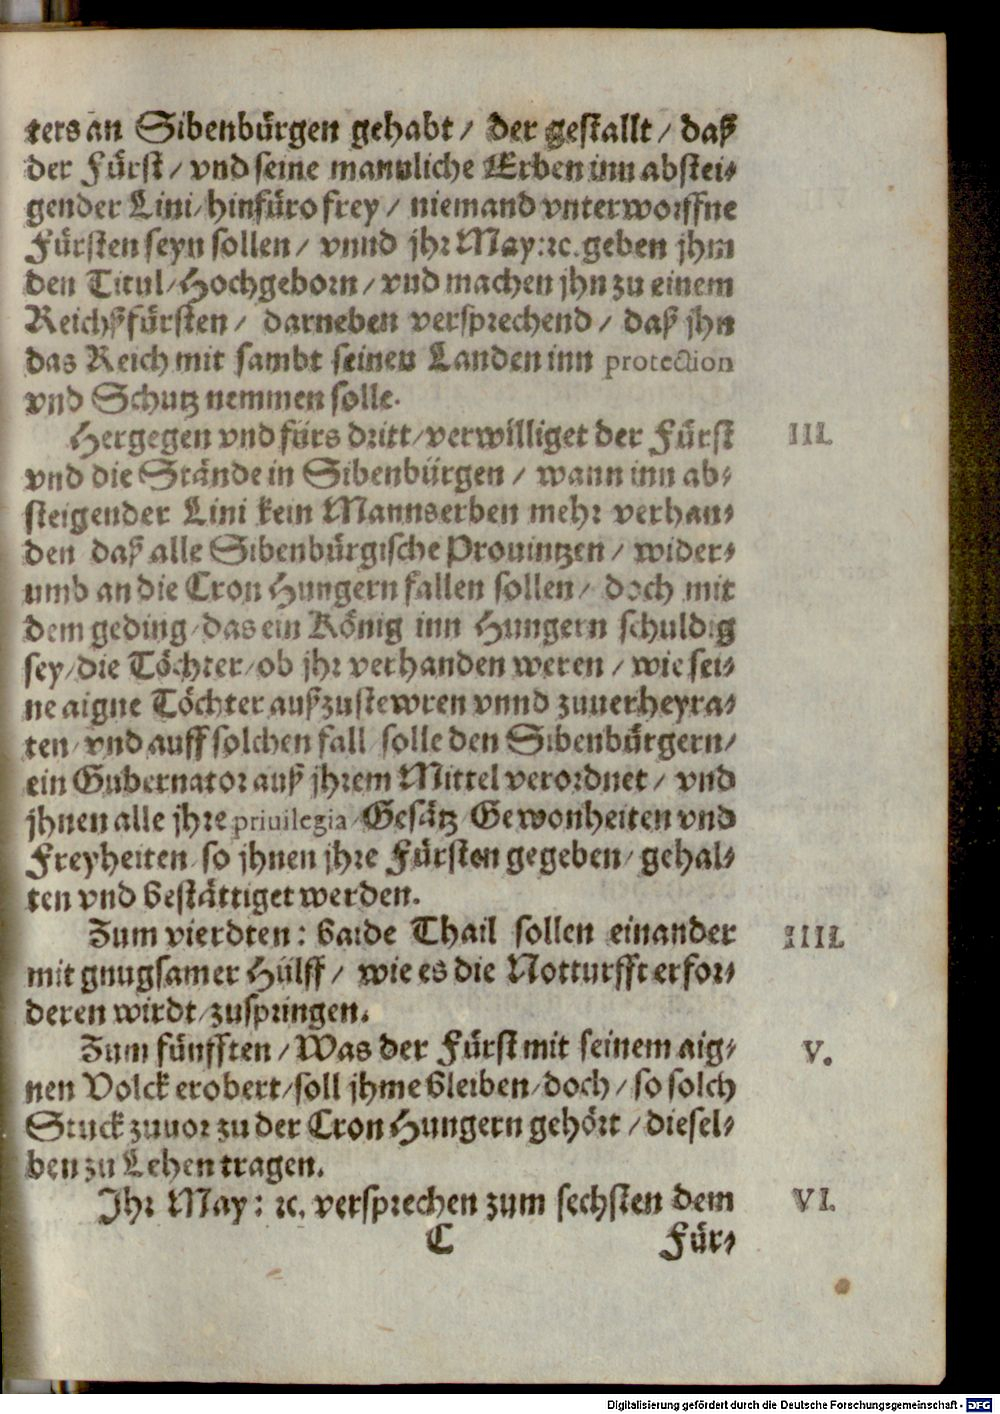 ters an Sibenbürgen gehabt / der gestallt / daß
der Fürst / vnd seine mannliche Erben inn abstei-
gender Lini / hinfüro frey / niemand vnterworffne
Fürsten seyn sollen / vnnd jhr May: ꝛc. geben jhm
den Titul / Hochgeborn / vnd machen jhn zu einem
Reichßfürsten / darneben versprechend / daß jhn
das Reich mit sambt seinen Landen inn protection
vnd Schutz nemmen solle.
Hergegen vnd fürs dritt / verwilliget der Fürst III.
vnd die Stände in Sibenbürgen / wann inn ab-
steigender Lini kein Mannserben mehr verhan-
den daß alle Sibenbürgische Prouintzen / wider-
umb an die Cron Hungern fallen sollen / doch mit
dem geding / das ein König inn Hungern schuldig
sey / die Töchter / ob jhr verhanden weren / wie sei-
ne aigne Töchter außzustewren vnnd zuuerheyra-
ten / vnd auff solchen fall / solle den Sibenbürgern /
ein Gubernator auß jhrem Mittel verordnet / vnd
jhnen alle jhre priuilegia / Gesätz / Gewonheiten vnd
Freyheiten / so jhnen jhre Fürsten gegeben / gehal-
ten vnd bestättiget werden.
Zum vierdten: baide Thail sollen einander IIII.
mit gnugsamer Hülff / wie es die Notturfft erfor-
deren wirdt / zuspringen.
Zum fünfften / Was der Fürst mit seinem aig- V.
nen Volck erobert / soll jhme bleiben / doch / so solch
Stuck zuuor zu der Cron Hungern gehört / diesel-
ben zu Lehen tragen.
Jhr May: ꝛc. versprechen zum sechsten dem VI.
C Für-
Digitalisierung gefördert durch die Deutsche Forschungsgemeinschaft - DFG